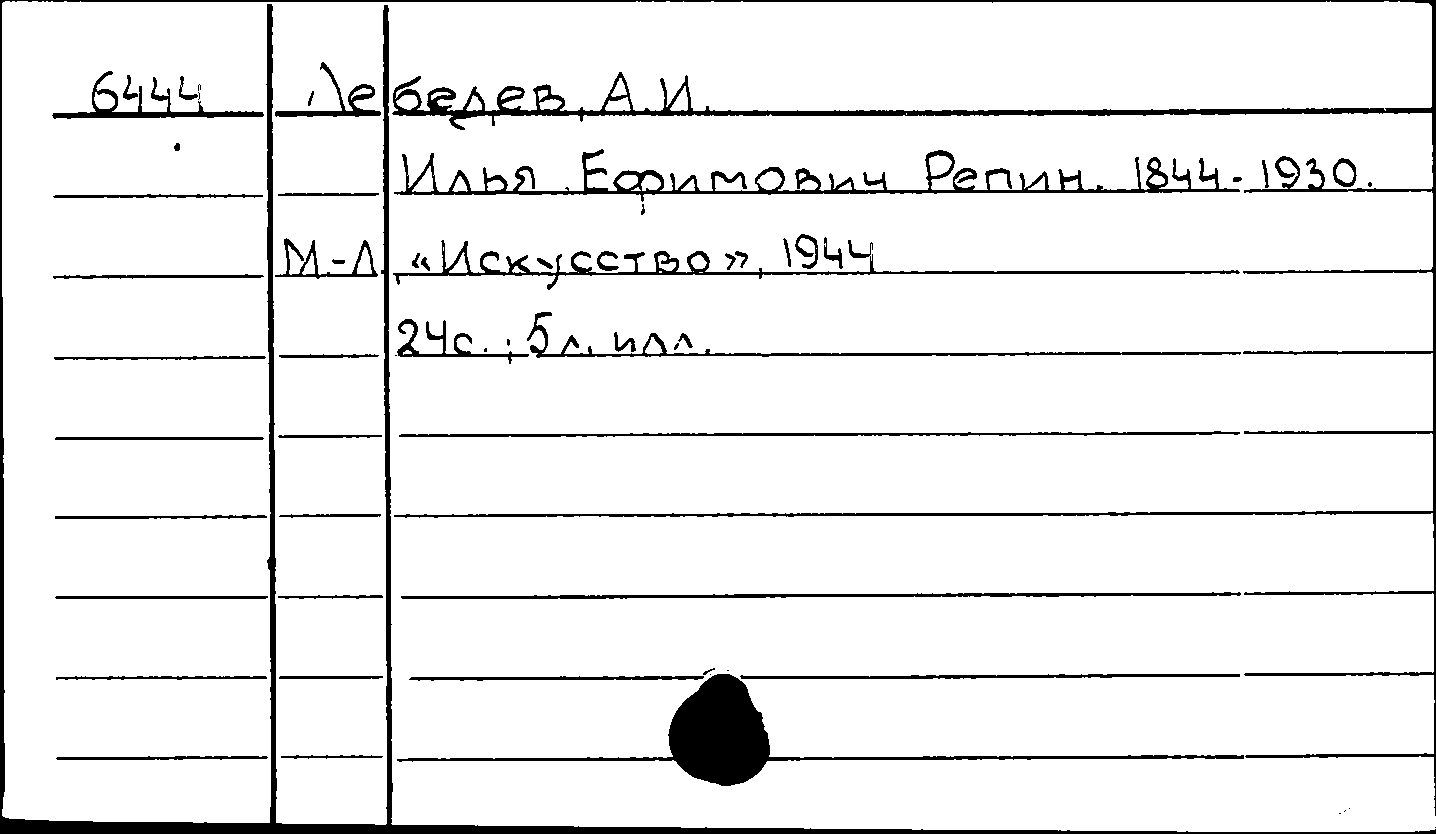 6444 Лебедев, А.И.
Илья Ефимович Репин. 1844-1930.
М.-Л., «Искусство», 1944
24с.; 5л. илл.